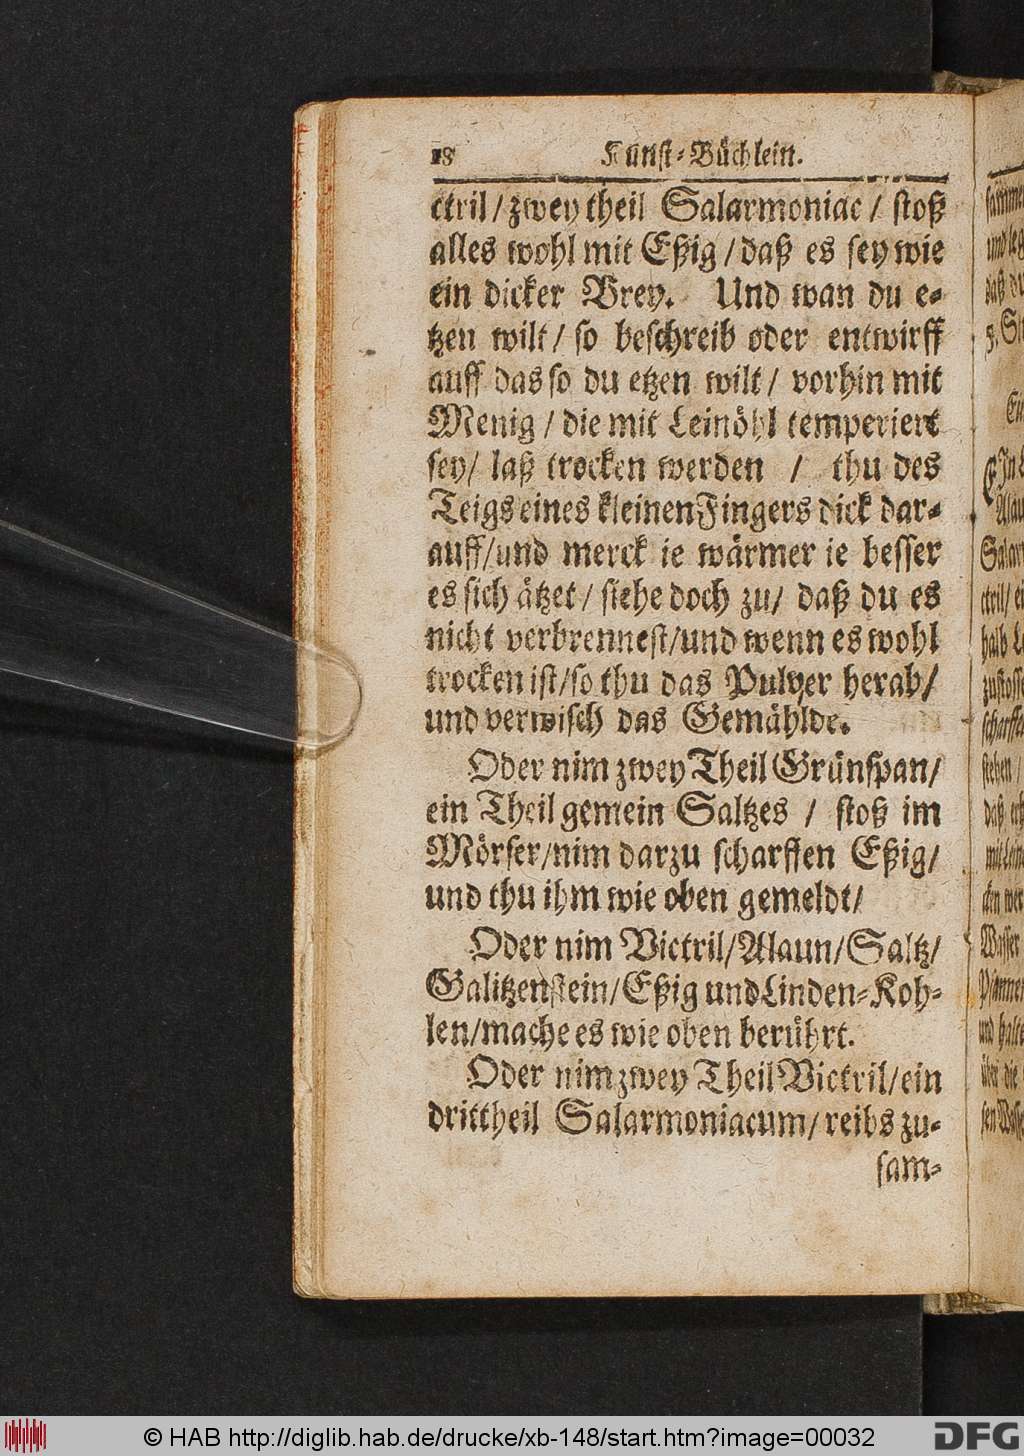 18 Kunst-Büchlein.
ctril/zwey theil Salarmoniac/ stoß
alles wohl mit Eßig/daß es sey wie
ein dicker Brey. Und wan du e-
tzen wilt/ so beschreib oder entwirff
auff das so du etzen wilt/ vorhin mit
Menig/die mit Leinöhl temperiert
sey/ laß trocken werden / thu des
Teigs eines kleinen Fingers dick dar-
auff/und merck ie wärmer ie besser
es sich ätzet/ siehe doch zu/ daß du es
nicht verbrennest/und wenn es wohl
trocken ist/so thu das Pulver herab/
und verwisch das Gemählde.
Oder nim zwey Theil Grünspan/
ein Theil gemein Saltzes / stoß im
Mörser/nim darzu scharffen Eßig/
und thu ihm wie oben gemeldt/
Oder nim Victril/Alaun/Saltz/
Galitzenstein/Eßig und Linden-Koh-
len/mache es wie oben berührt.
Oder nim zwey Theil Victril/ein
drittheil Salarmoniacum/reibs zu-
sam-
© HAB http://diglib.hab.de/drucke/xb-148/start.htm?image=00032
DFG